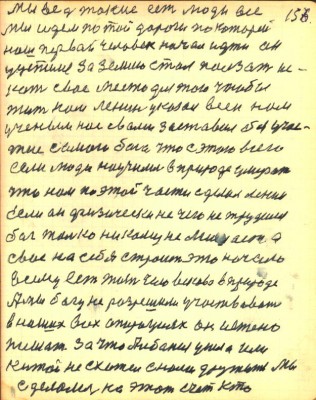 мы вед такие ест люди все 158.
мы идем по той дороги по которой
наш первай человек начал идти он
за землю стал ползат ис-
кат свое место для того чтобы
жит нам Ленин указал всем нам
ученым нас свами заставил бы учас-
тие самого бога что с этого всего
если люди научили в природе умират
что нам по этой части сделал Ленин
если он физически не чего не трудился
баг толко никому не мешает а
свое на себя строит это начало
всему ест жит человеково в природе
А мы богу не разрешили участвоват
в наших всех он
пишат за что Албания ушла или
китай не схотел снами дружит мы
сделалис на этот счет кто